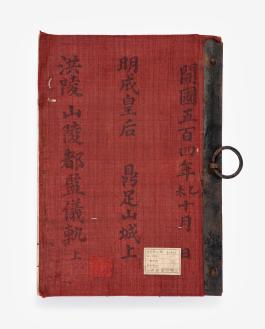 開國五百四年乙未十月 日
明成皇后 鼎足山城上
洪陵山陵都監儀軌 上